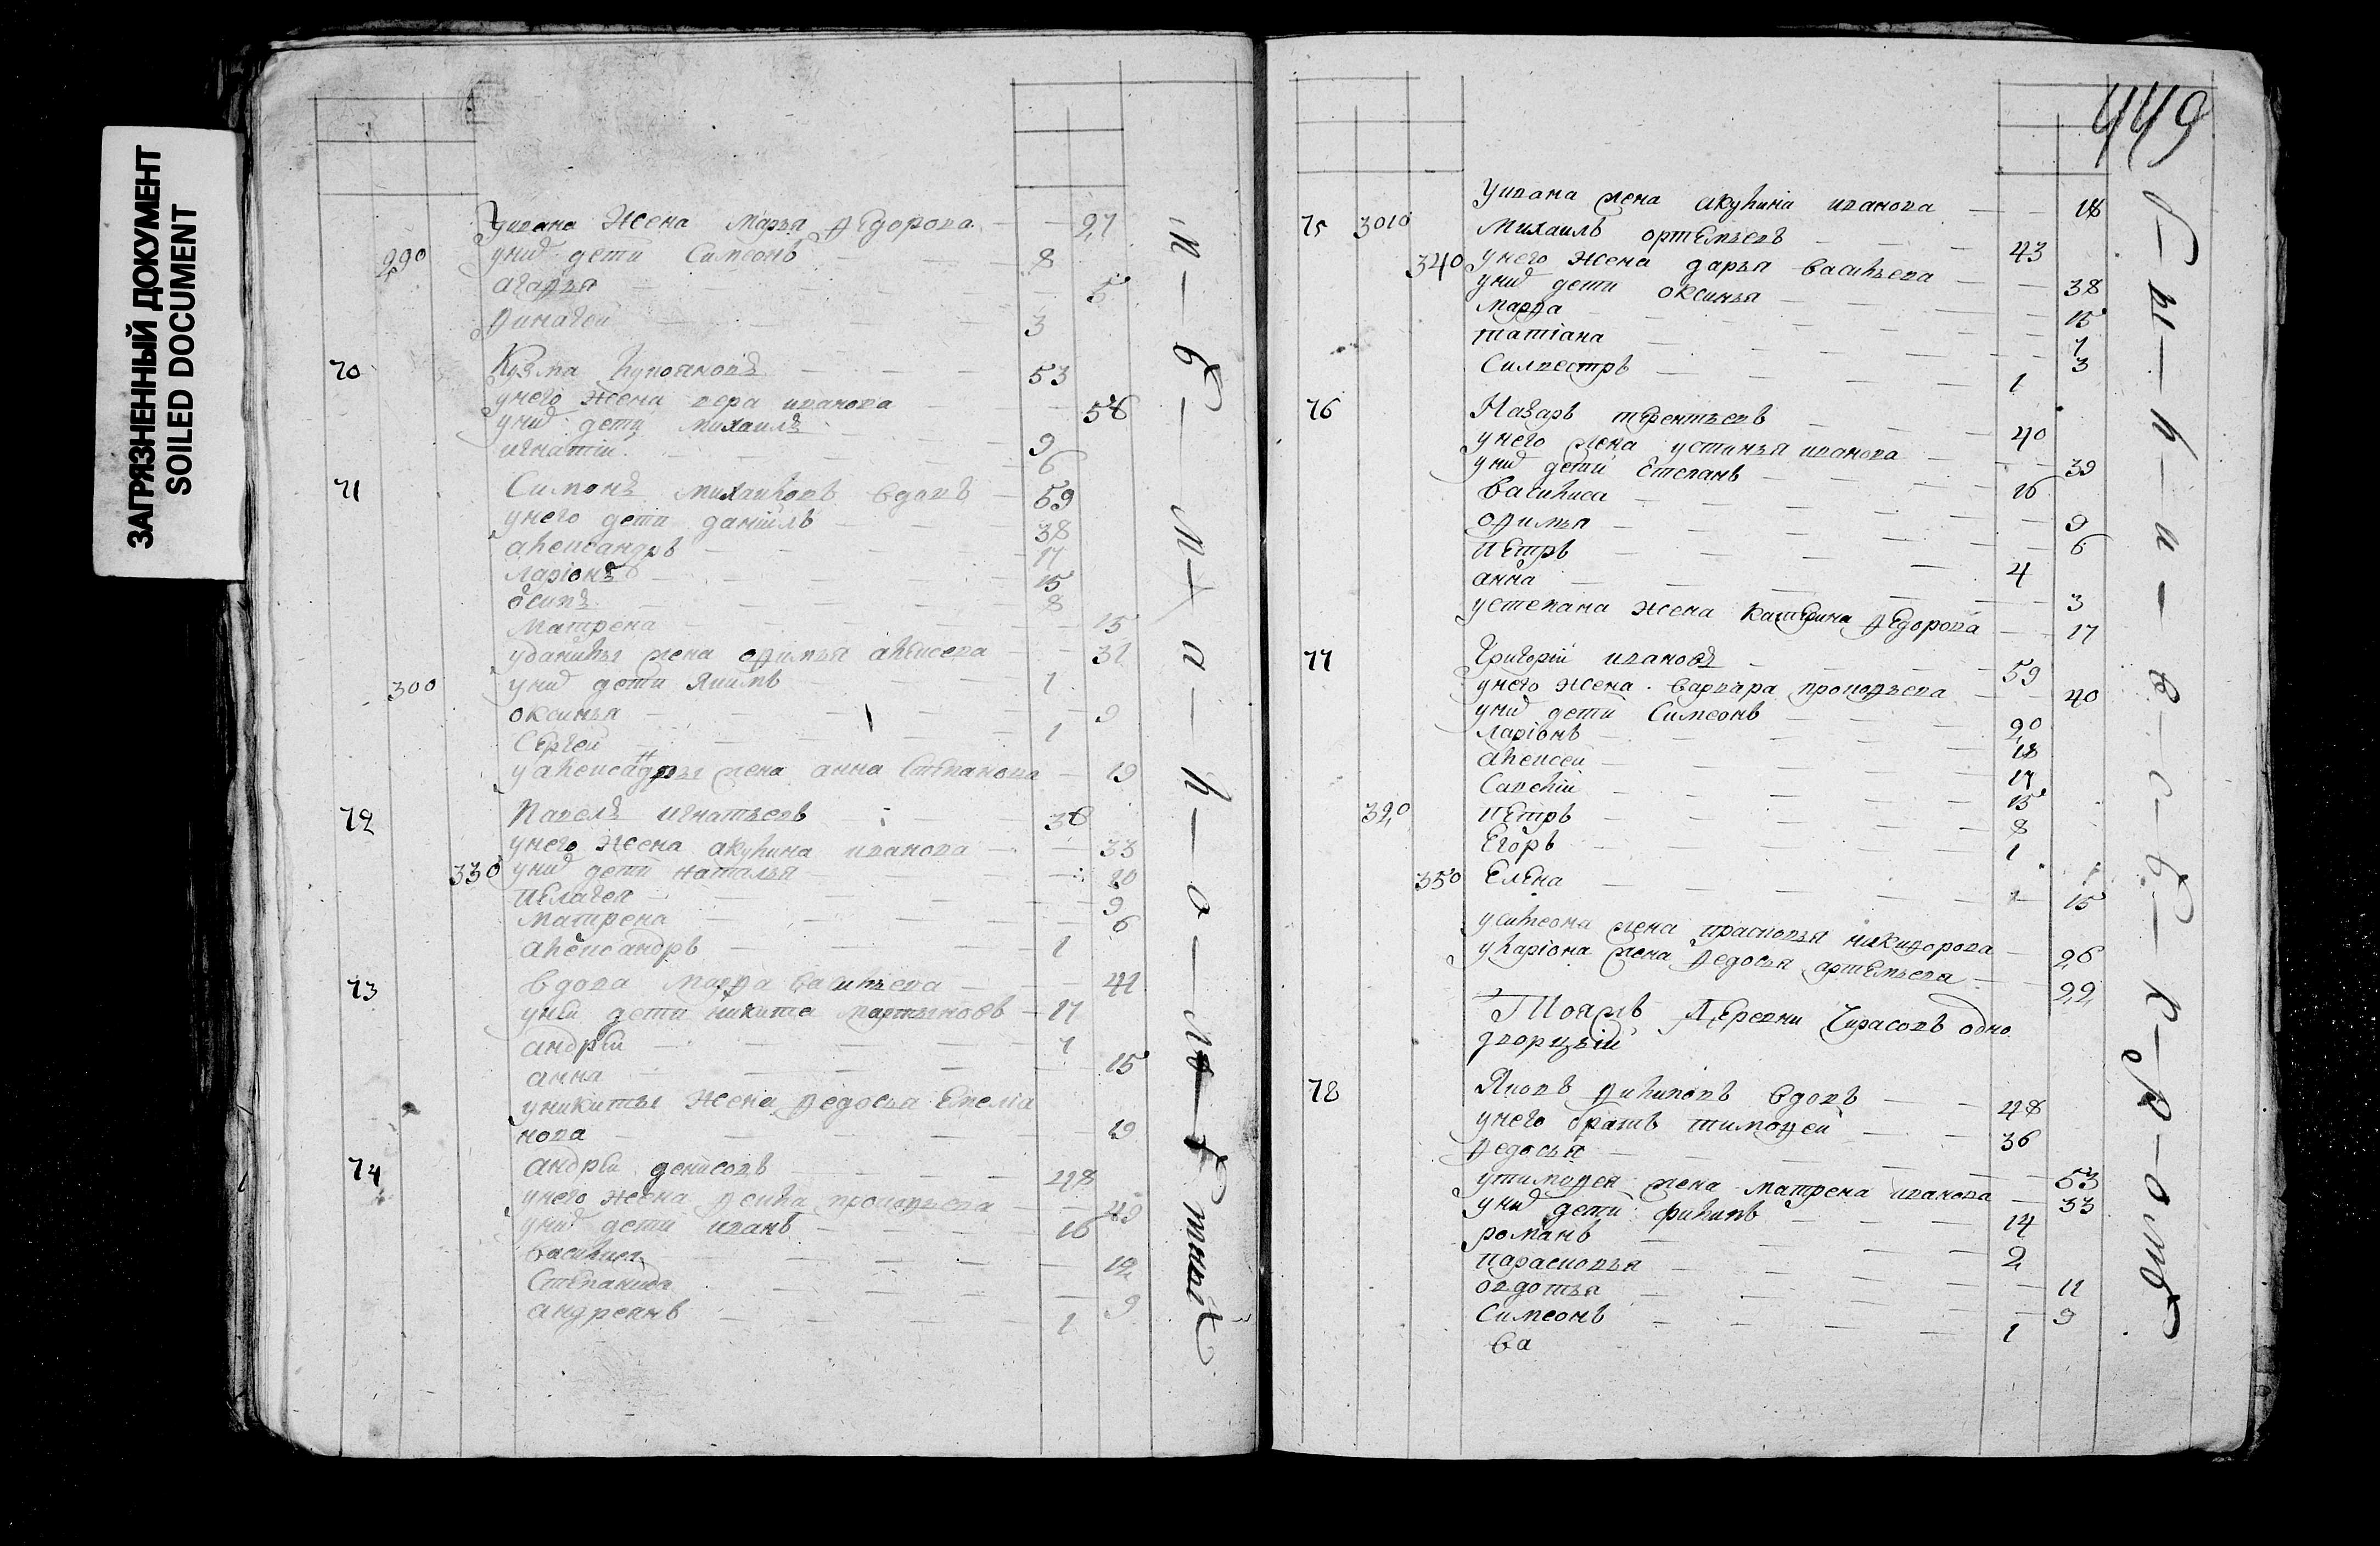 ЗАГРЯЗНЕННЫЙ ДОКУМЕНТ
SOILED DOCUMENT
уивана жена марья федорова 27
290 уних дети симеонъ 8
агафья 5
3
70 Кузма 53
унего жена вера иванова 56
уних дети михаилъ 9
игнатiй 6
71 Симонъ михаиловъ вдовъ 59
унего дети данiилъ 38
александръ 17
ларiонъ 15
осипъ 8
матрена 15
уданилы жена офимья алексеева 31
300 уних дети якимъ 1
оксинья 9
Сергей 1
уалександры жена анна степанова 19
72 Павелъ игнатьевъ 38
унего жена акулина иванова 33
330 уних дети наталья 20
пелагея 9
матрена 6
александръ 1
73 вдова марфа васильева 41
уней дети никита мартыновъ 17
андрей 7
анна 15
уникиты жена федосья емелiа
нова 19
74 андрей денисовъ 48
унего жена прокофьева 49
уних дети иванъ 16
василиса 12
степанида 9
андреянъ 1
449
уивана жена акулина иванова 18
75 3010 михаилъ ортемьевъ 43
340 унего жена дарья васильева 38
уних дети оксинья 15
марфа 7
татiана 3
силвестръ 1
76 Назаръ терентьевъ 40
унего жена устинья иванова 39
уних дети степанъ 16
василиса 9
офимья 6
петръ 4
анна 3
устепана жена катерина федорова 17
77 Григорiй ивановъ 59
унего жена варвара прокофьева 40
уних дети симеонъ 20
ларiонъ 18
алексей 17
савелiй 15
320 петръ 8
егоръ 1
350 елена 15
усимеона жена прасковья никифорова 26
уларiона жена федосья артемьева 22
Тояжъ деревни одно
дворцы
78 Яковъ филиповъ вдовъ 48
унего братъ тимофей 36
федосья 53
утимофея жена матрена иванова 33
уних дети филипъ 14
романъ 2
парасковья 11
овдотья 9
симеонъ 1
ва